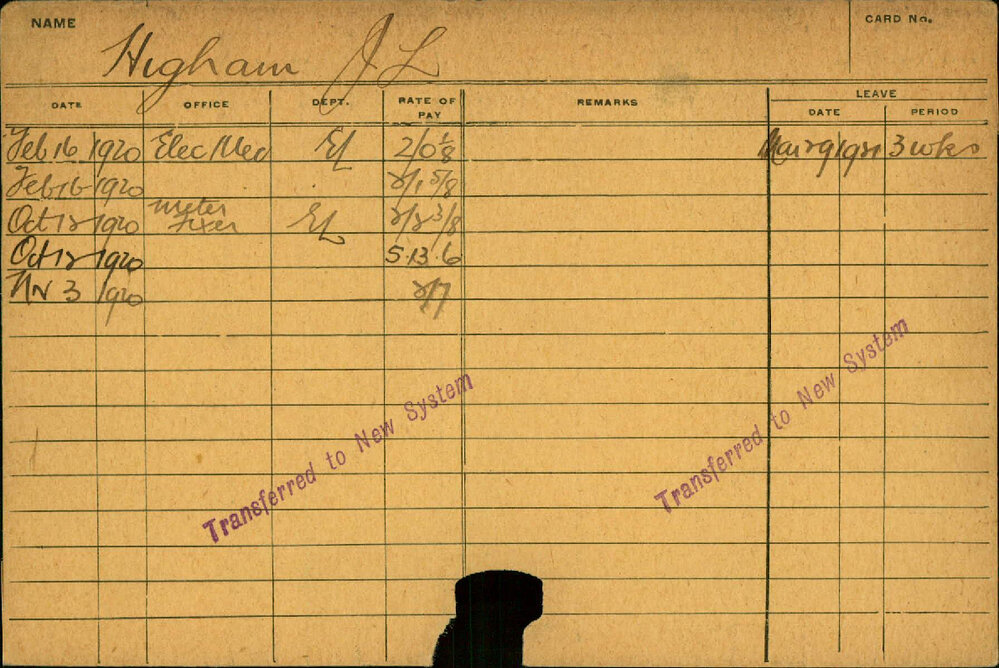 NAME Higham J L CARD No.
DATE OFFICE DEPT. RATE OF PAY REMARKS LEAVE DATE PERIOD
Feb 16 1920 Elec Mec El 2/0 1/8 Mar 29 1921 3 wks
Feb 16 1920 2/1 5/8
Oct 12 1920 meter fixer El 2/2 3/8
Oct 12 1920 5.13.6
Nv 3 1920 2/7
Transferred to New System
Transferred to New System